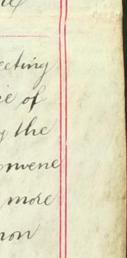 eeting
ie of
y the
onvene
more
non